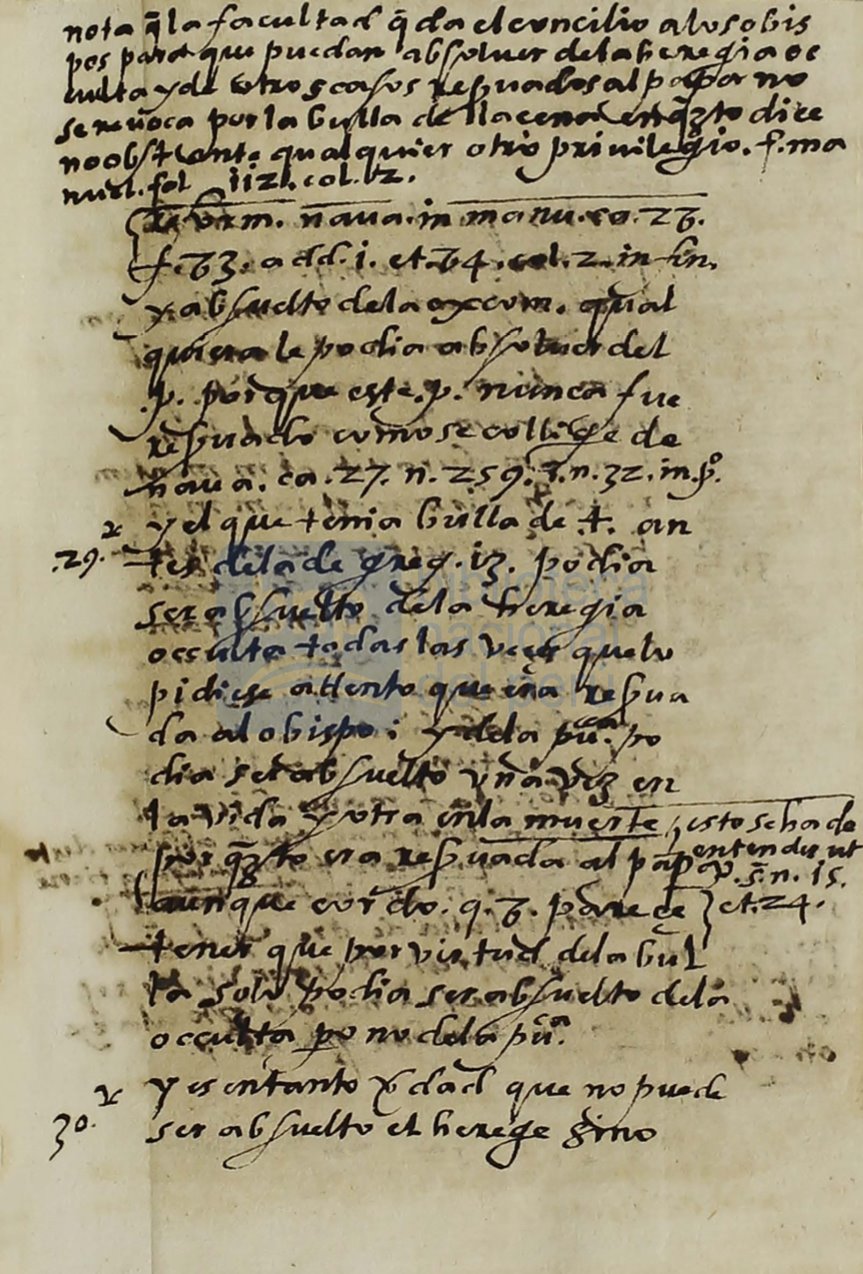 nota q̃ la facultad q̃ da el concilio a los obis
pos para que puedan absoluer de la heregia oc
culta y de otros casos resuados al papa no
se reuoca por la bulla de la cena en qto dice
no obstante qualquier otro privilegio. f. ma
nuel. fol 1121. col. 2.
naua. in manu. ca. 27.
f. 73. add. i. et. 74. col. 2. in fin.
y absuelto de la excom. qual
quiera le podia absoluer del
.p. porque este .p. nunca fue
resuado como se collige de
naua. ca. 27. n. 259. s. n. 32. in. p̊.
.29. y el que tenia bulla de †. an
tes de la de greg. 13. podia
ser absuelto de la heregia
occulta todas las veces que lo
pidiese attento que era resua
da al obispo: y de la pu.ca po
dia ser absuelto vna vez en
la vida y otra en la muerte, esto se ha de
por qto era resuada al papa entender ut
s. n. 15.
aunque cordo. q. 7. parece et. 24.
tener que por virtud de la bul
la solo podia ser absuelto de la
occulta po no de la pu.ca
30. y es en tanto vdad que no puede
ser absuelto el herege sino